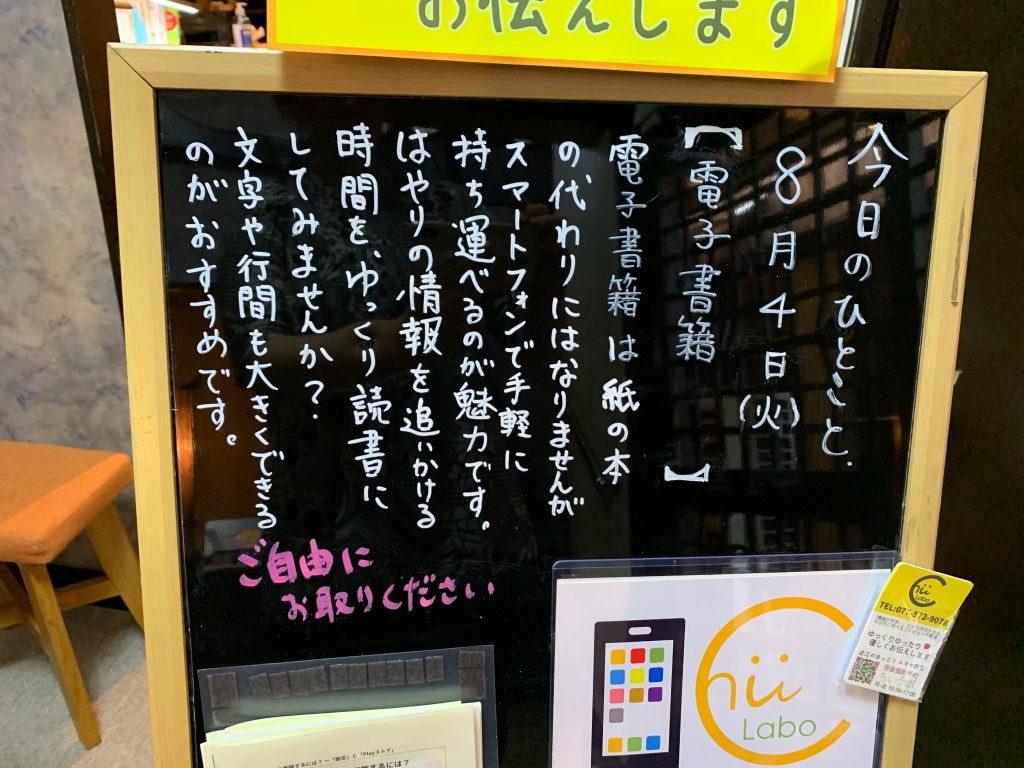 お伝えします
今日のひとこと.
8月4日(火)
【電子書籍】
電子書籍は紙の本
の代わりにはなりませんが
スマートフォンで手軽に
持ち運べるのが魅力です。
はやりの情報を追いかける
時間を、ゆっくり読書に
してみませんか?
文字や行間も大きくできる
のがおすすめです。
ご自由に
お取りください
Chii
Labo
Chii
Labo
ゆっくりゆったり
優しくお伝えします
完全個別予約
10:30-17:00
～「設定」と「Playストア」